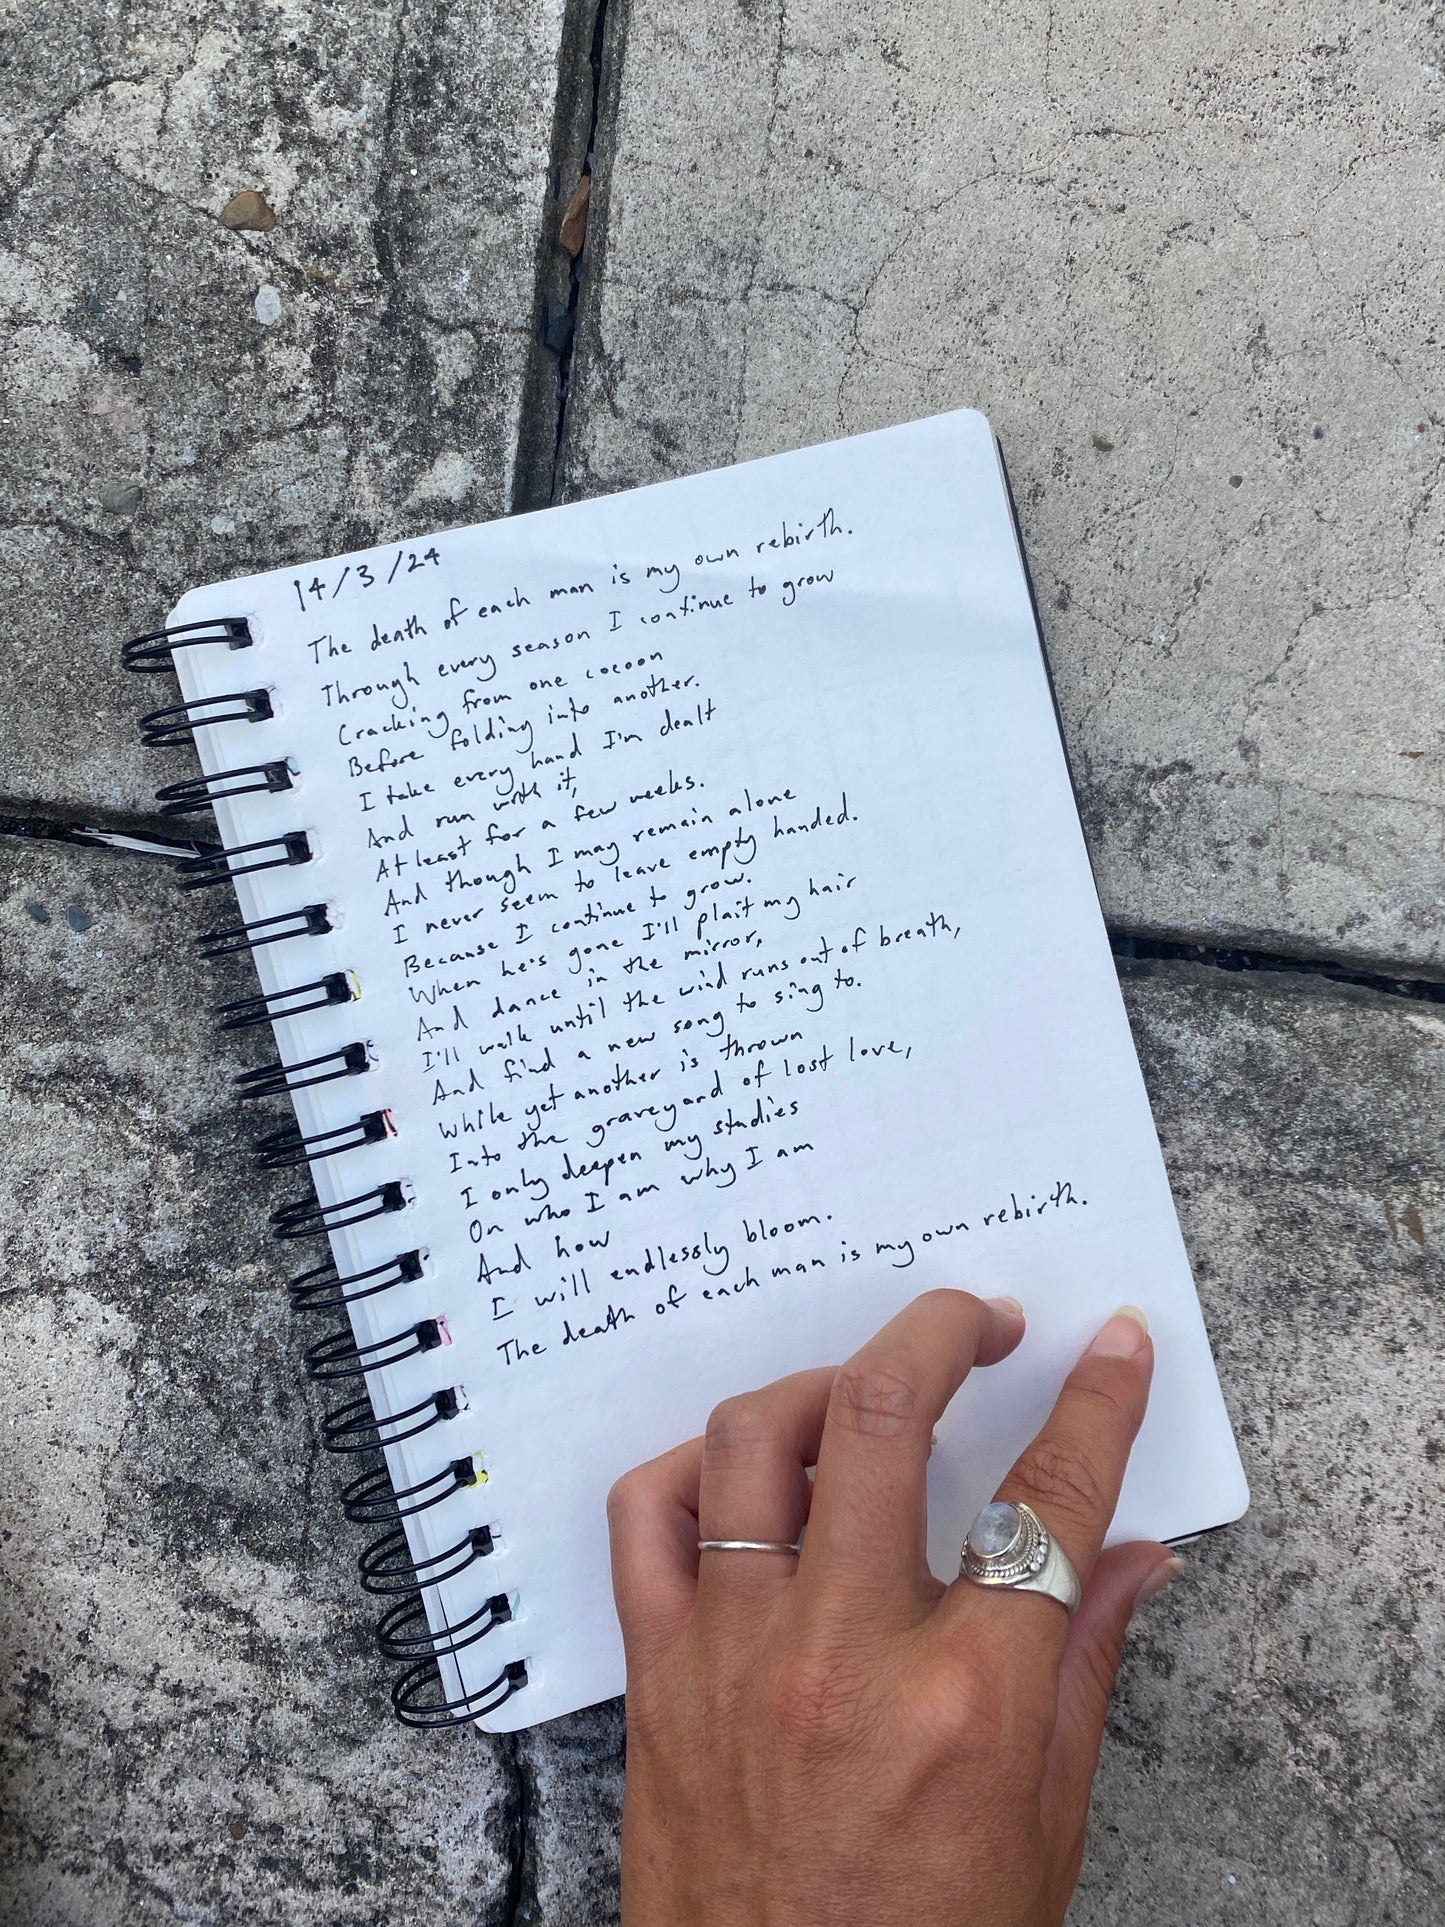 14/3/24
The death of each man is my own rebirth.
Through every season I continue to grow
Cracking from one cocoon
Before folding into another.
I take every hand I'm dealt
And run with it,
At least for a few weeks.
And though I may remain alone
I never seem to leave empty handed.
Because I continue to grow.
When he's gone I'll plait my hair
And dance in the mirror,
I'll walk until the wind runs out of breath,
And find a new song to sing to.
While yet another is thrown
Into the graveyard of lost love,
I only deepen my studies
On who I am why I am
And how
I will endlessly bloom.
The death of each man is my own rebirth.